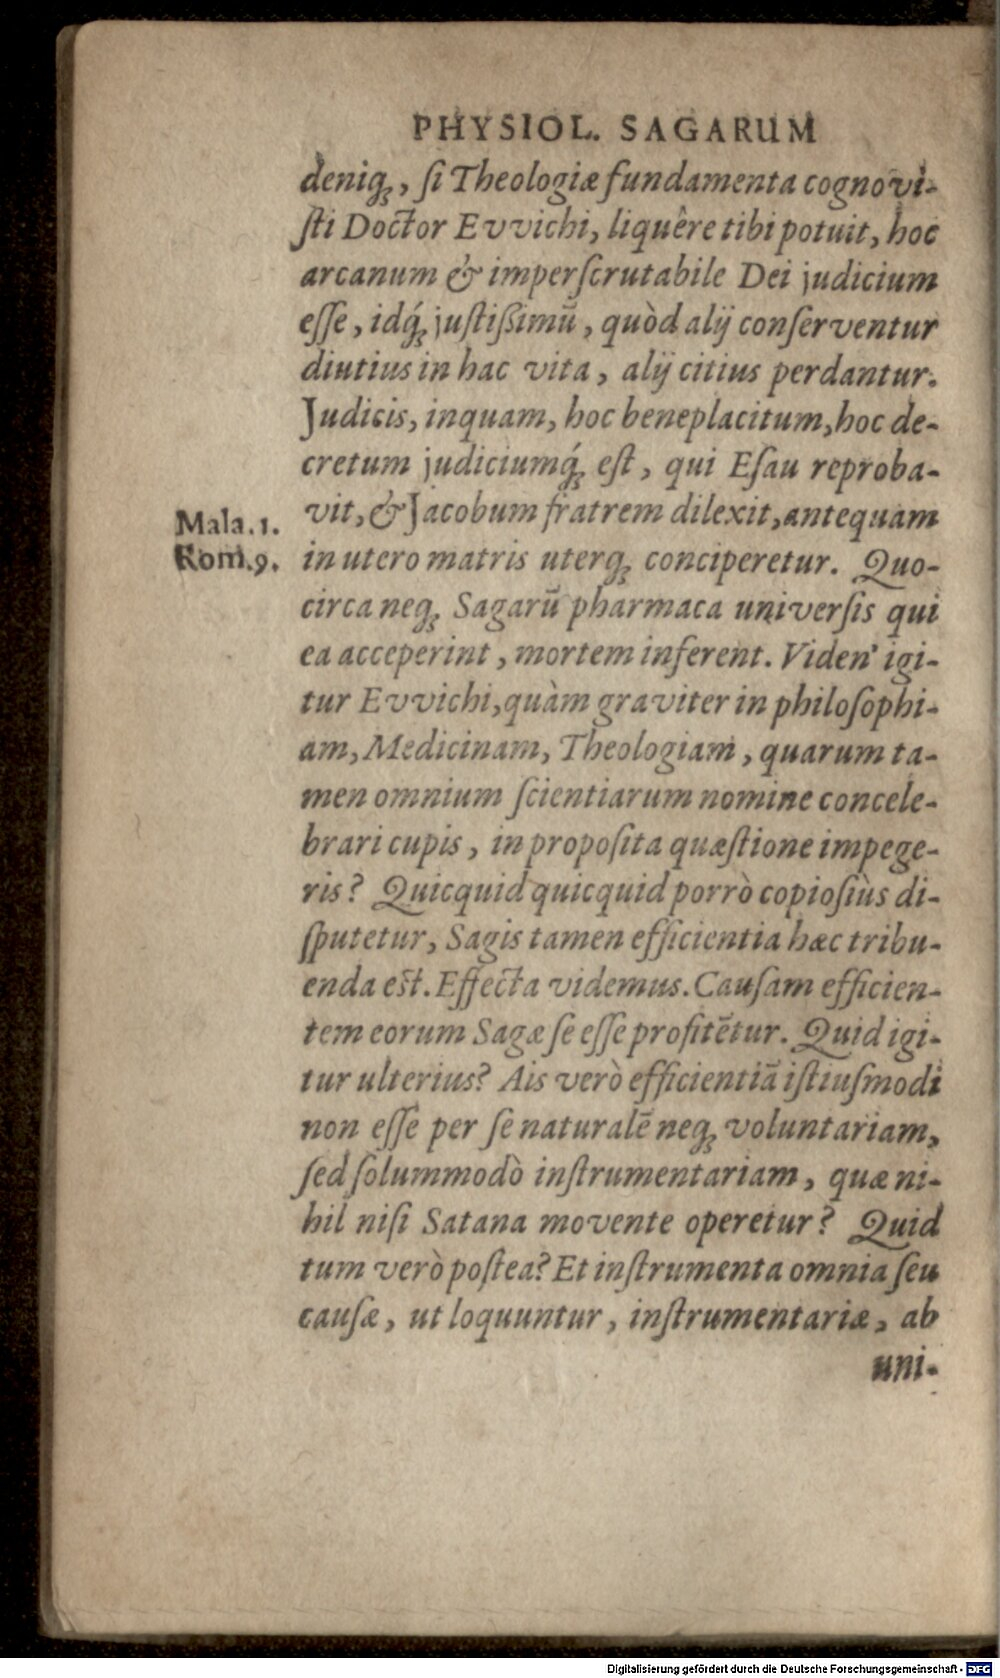 PHYSIOL. SAGARUM
deniq́ꝫ, ſi Theologiæ fundamenta cognovi-
ſti Doctor Evvichi, liquêre tibi potuit, hoc
arcanum & imperſcrutabile Dei judicium
eſſe, idq́ꝫ juſtißimū, quòd alij conſerventur
diutius in hac vita, alij citius perdantur.
Judicis, inquam, hoc beneplacitum, hoc de-
cretum judiciumq́ꝫ eſt, qui Eſau reproba-
Mala. 1.
vit, & Jacobum fratrem dilexit, antequam
Rom. 9.
in utero matris uterqꝫ conciperetur. Quo-
circa neqꝫ Sagarū pharmaca univerſis qui
ea acceperint, mortem inferent. Viden' igi-
tur Evvichi, quàm graviter in philoſophi-
am, Medicinam, Theologiam, quarum ta-
men omnium ſcientiarum nomine concele-
brari cupis, in propoſita quæſtione impege-
ris? Quicquid quicquid porrò copioſiùs di-
ſputetur, Sagis tamen efficientia hæc tribu-
enda eſt. Effecta videmus. Cauſam efficien-
tem eorum Sagæ ſe eſſe profitētur. Quid igi-
tur ulterius? Ais verò efficientiā iſtiuſmodi
non eſſe per ſe naturalē neqꝫ voluntariam,
ſed ſolummodò inſtrumentariam, quæ ni-
hil niſi Satana movente operetur? Quid
tum verò poſtea? Et inſtrumenta omnia ſeu
cauſæ, ut loquuntur, inſtrumentariæ, ab
uni-
Digitalisierung gefördert durch die Deutsche Forschungsgemeinschaft - DFG